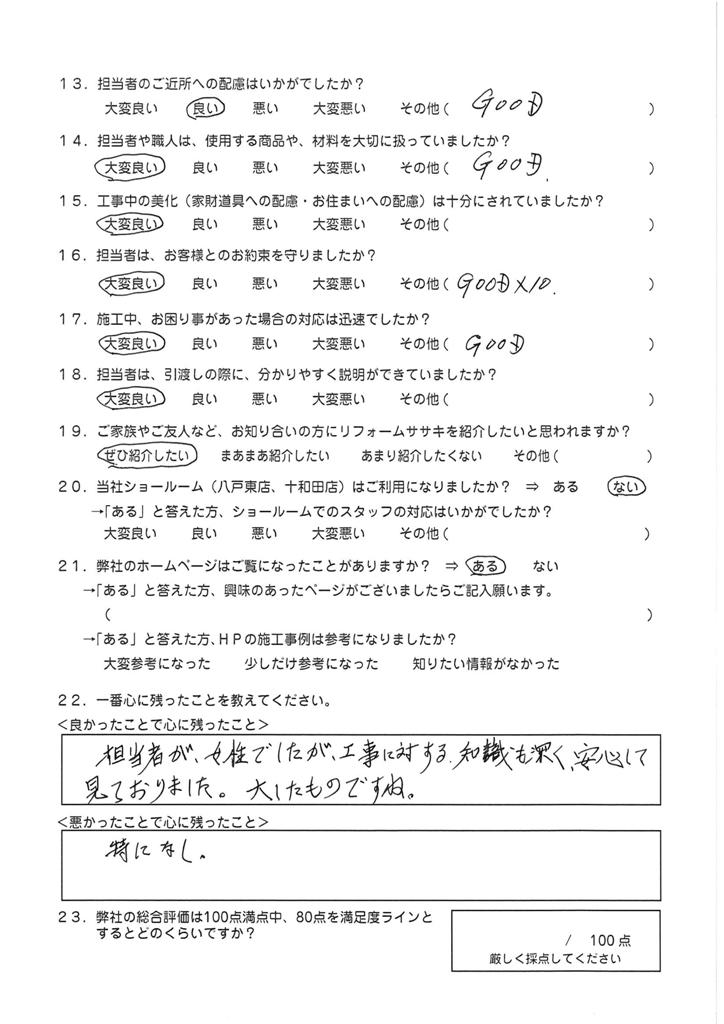 13．担当者のご近所への配慮はいかがでしたか？
大変良い 良い 悪い 大変悪い その他( GOOD )
14．担当者や職人は、使用する商品や、材料を大切に扱っていましたか？
大変良い 良い 悪い 大変悪い その他( GOOD. )
15．工事中の美化（家財道具への配慮・お住まいへの配慮）は十分にされていましたか？
大変良い 良い 悪い 大変悪い その他( )
16．担当者は、お客様とのお約束を守りましたか？
大変良い 良い 悪い 大変悪い その他( GOOD×10. )
17．施工中、お困り事があった場合の対応は迅速でしたか？
大変良い 良い 悪い 大変悪い その他( GOOD )
18．担当者は、引渡しの際に、分かりやすく説明ができていましたか？
大変良い 良い 悪い 大変悪い その他( )
19．ご家族やご友人など、お知り合いの方にリフォームササキを紹介したいと思われますか？
ぜひ紹介したい まあまあ紹介したい あまり紹介したくない その他( )
20．当社ショールーム（八戸東店、十和田店）はご利用になりましたか？ ⇒ ある ない
→「ある」と答えた方、ショールームでのスタッフの対応はいかがでしたか？
大変良い 良い 悪い 大変悪い その他( )
21．弊社のホームページはご覧になったことがありますか？ ⇒ ある ない
→「ある」と答えた方、興味のあったページがございましたらご記入願います。
( )
→「ある」と答えた方、ＨＰの施工事例は参考になりましたか？
大変参考になった 少しだけ参考になった 知りたい情報がなかった
22．一番心に残ったことを教えてください。
<良かったことで心に残ったこと>
担当者が、女性でしたが、工事に対する、知識も深く、安心して
見ておりました。大したものですね。
<悪かったことで心に残ったこと>
特になし。
23．弊社の総合評価は100点満点中、80点を満足度ラインと
するとどのくらいですか？
/ 100点
厳しく採点してください